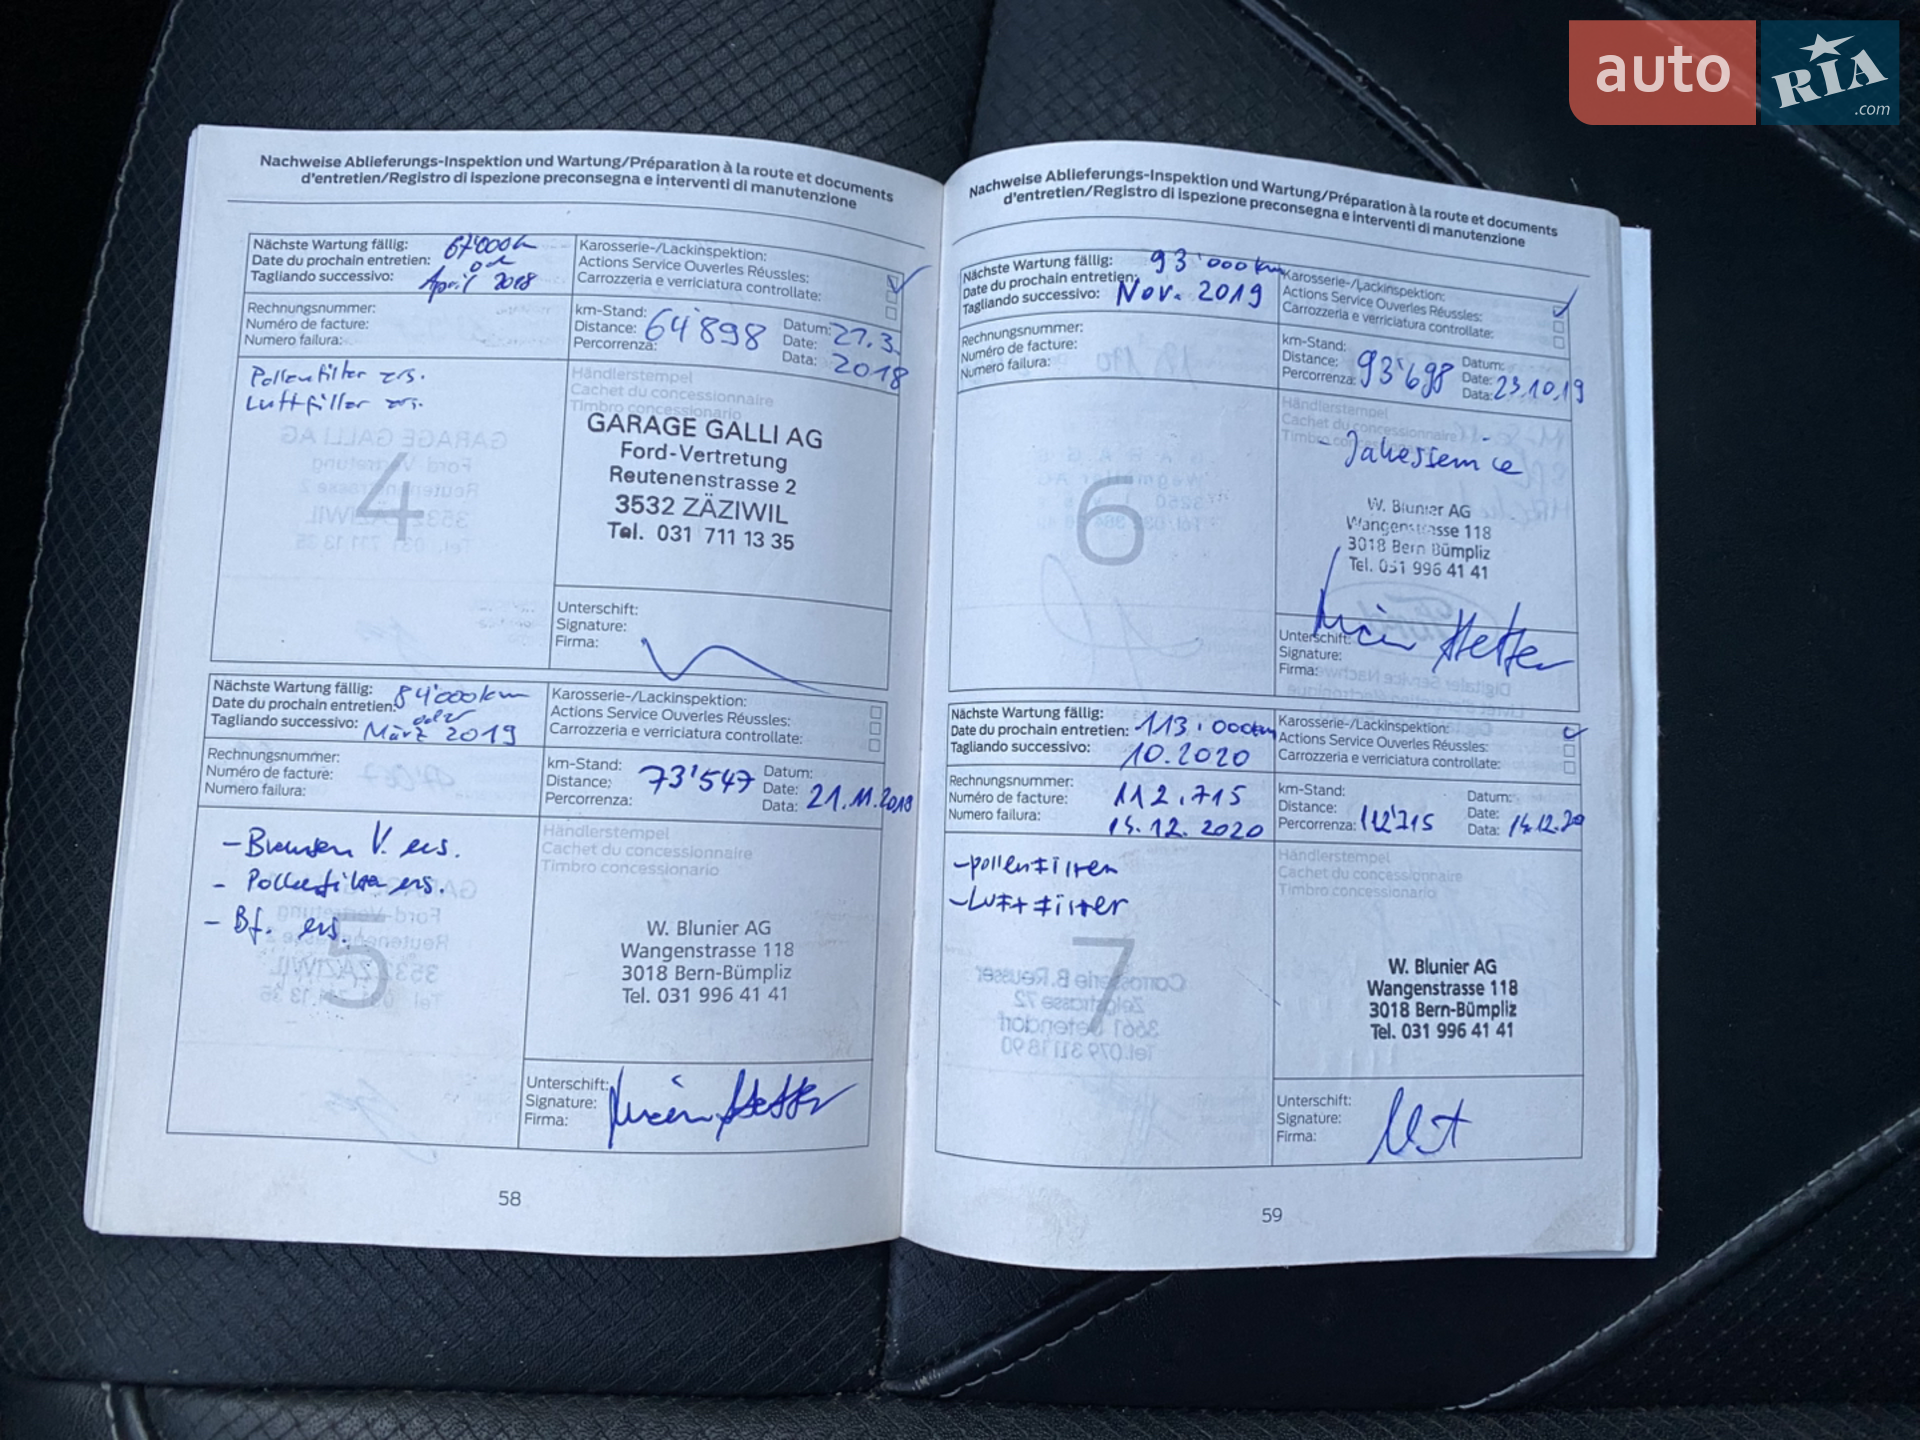 auto RIA .com
Nachweise Ablieferungs-Inspektion und Wartung/Préparation à la route et documents
d'entretien/Registro di ispezione preconsegna e interventi di manutenzione
Nächste Wartung fällig: 67'000km
Date du prochain entretien:
Tagliando successivo: April 2018
Karosserie-/Lackinspektion:
Actions Service Ouverles Réussles:
Carrozzeria e verriciatura controllate:
Rechnungsnummer:
Numéro de facture:
Numero failura:
km-Stand:
Distance: 64'898
Percorrenza:
Datum: 27.3.
Date:
Data: 2018
Pollenfilter ers.
Luftfilter ers.
4
Händlerstempel
Cachet du concessionnaire
Timbro concessionario
GARAGE GALLI AG
Ford-Vertretung
Reutenenstrasse 2
3532 ZÄZIWIL
Tel. 031 711 13 35
Unterschift:
Signature:
Firma:
Nächste Wartung fällig: 84'000km
Date du prochain entretien: oder
Tagliando successivo: März 2019
Karosserie-/Lackinspektion:
Actions Service Ouverles Réussles:
Carrozzeria e verriciatura controllate:
Rechnungsnummer:
Numéro de facture:
Numero failura:
km-Stand:
Distance: 73'547
Percorrenza:
Datum:
Date:
Data: 21.11.2018
- Bremsen V. ers.
- Pollenfilter ers.
- Bf. ers.
5
Händlerstempel
Cachet du concessionnaire
Timbro concessionario
W. Blunier AG
Wangenstrasse 118
3018 Bern-Bümpliz
Tel. 031 996 41 41
Unterschift:
Signature:
Firma:
58
Nachweise Ablieferungs-Inspektion und Wartung/Préparation à la route et documents
d'entretien/Registro di ispezione preconsegna e interventi di manutenzione
Nächste Wartung fällig: 93'000km
Date du prochain entretien:
Tagliando successivo: Nov. 2019
Karosserie-/Lackinspektion:
Actions Service Ouverles Réussles:
Carrozzeria e verriciatura controllate:
Rechnungsnummer:
Numéro de facture:
Numero failura:
km-Stand:
Distance:
Percorrenza: 93'698
Datum:
Date:
Data: 23.10.19
6
Händlerstempel
Cachet du concessionnaire
Timbro
- Jahresservice
W. Blunier AG
Wangenstrasse 118
3018 Bern Bümpliz
Tel. 031 996 41 41
Unterschift:
Signature:
Firma:
Nächste Wartung fällig:
Date du prochain entretien: 113'000km
Tagliando successivo: 10.2020
Karosserie-/Lackinspektion:
Actions Service Ouverles Réussles:
Carrozzeria e verriciatura controllate:
Rechnungsnummer:
Numéro de facture: 112.715
Numero failura: 14.12.2020
km-Stand:
Distance:
Percorrenza: 112'715
Datum:
Date:
Data: 14.12.20
- pollenfilter
- Luftfilter
7
Händlerstempel
Cachet du concessionnaire
Timbro concessionario
W. Blunier AG
Wangenstrasse 118
3018 Bern-Bümpliz
Tel. 031 996 41 41
Unterschift:
Signature:
Firma:
59